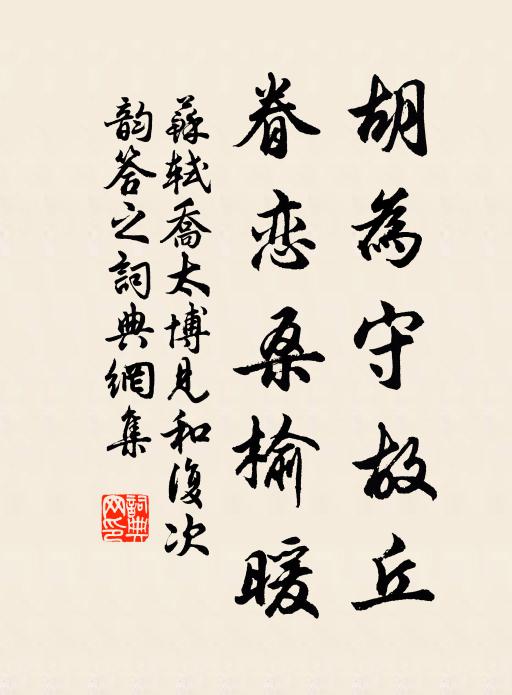 胡為守故丘
眷恋桑榆暖
蘇軾喬太博見和復次
韵答之詞典網集
詞典網印